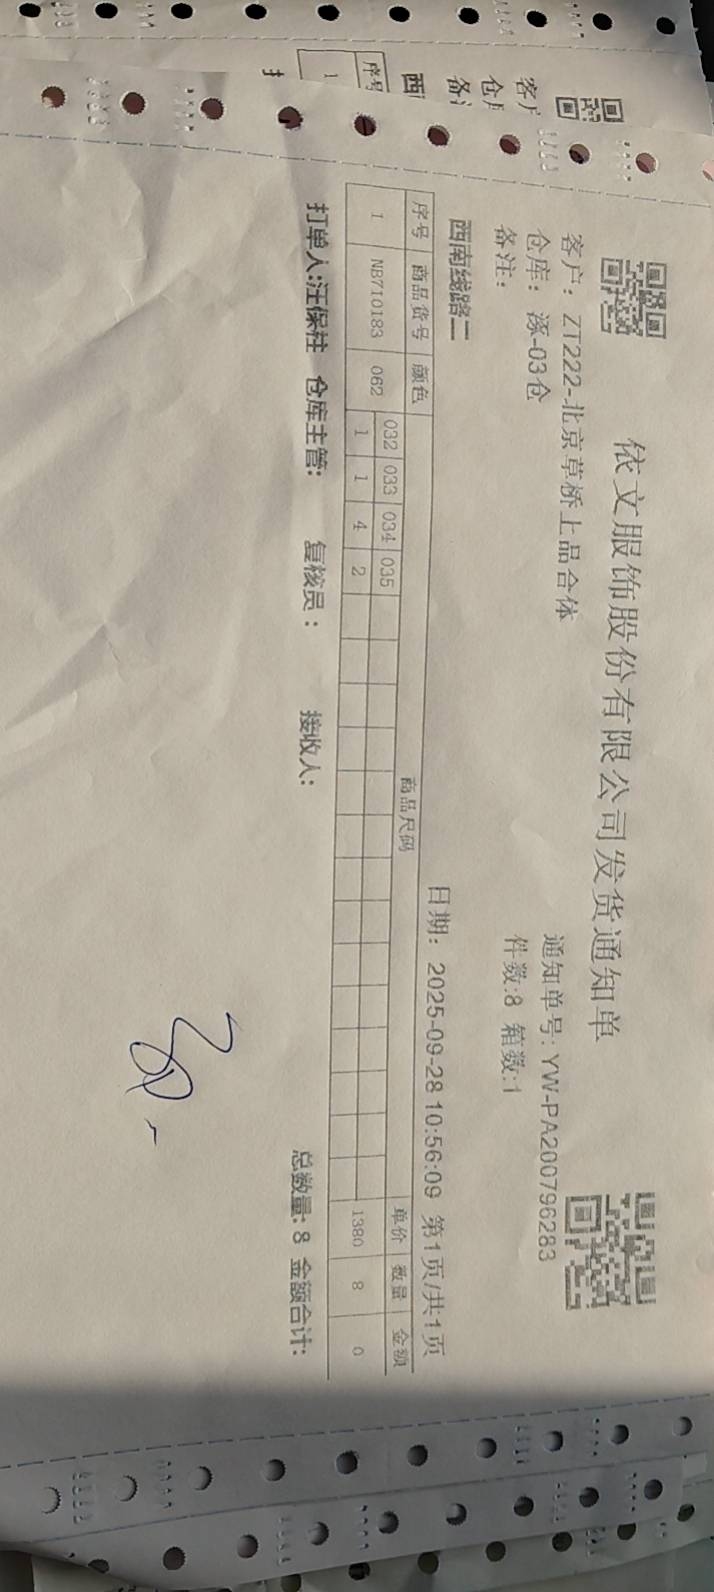 客户
仓库
备注
西
序号
1
依文服饰股份有限公司发货通知单
客户: ZT222-北京草桥上品合体
通知单号: YW-PA200796283
仓库: 涿-03仓
件数:8 箱数:1
备注:
西南线路二
日期: 2025-09-28 10:56:09 第1页/共1页
序号 商品货号 颜色 商品尺码 单价 数量 金额
032 033 034 035
1 NB710183 062 1 1 4 2 1380 8 0
打单人:汪保柱 仓库主管: 复核员: 接收人: 总数量: 8 金额合计: